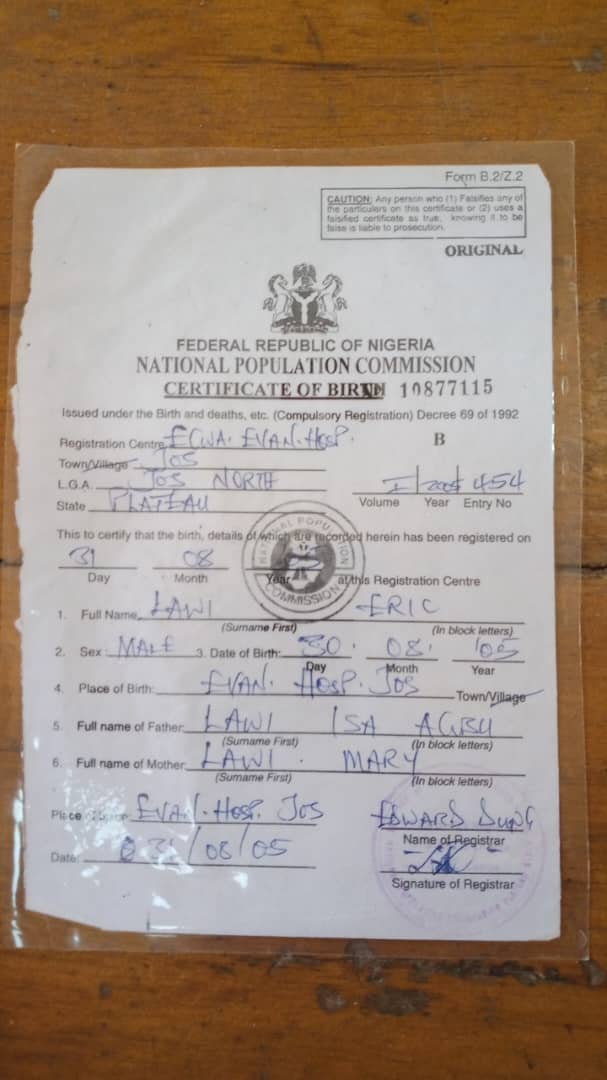 Form B.2/Z.2
CAUTION: Any person who (1) Falsifies any of
the particulars on this certificate or (2) uses a
falsified certificate as true, knowing it to be
false is liable to prosecution.
ORIGINAL
FEDERAL REPUBLIC OF NIGERIA
NATIONAL POPULATION COMMISSION
CERTIFICATE OF BIRTH 10877115
Issued under the Birth and deaths, etc. (Compulsory Registration) Decree 69 of 1992
Registration Centre ECWA. EVAN. HOSP. B
Town/Village JOS
L.G.A. JOS NORTH I/2005/454
State PLATEAU Volume Year Entry No
This to certify that the birth, details of which are recorded herein has been registered on
31 08 05
Day Month Year at this Registration Centre
1. Full Name LAWI ERIC
(Surname First) (In block letters)
2. Sex: MALE 3. Date of Birth: 30. 08. '05
Day Month Year
4. Place of Birth: EVAN. HOSP. JOS Town/Village
5. Full name of Father LAWI ISA
(Surname First) (In block letters)
6. Full name of Mother LAWI. MARY
(Surname First) (In block letters)
Place EVAN. HOSP. JOS EDWARD DUNG
Name of Registrar
Date: 31/08/05
Signature of Registrar
NATIONAL POPU
COMMISSION